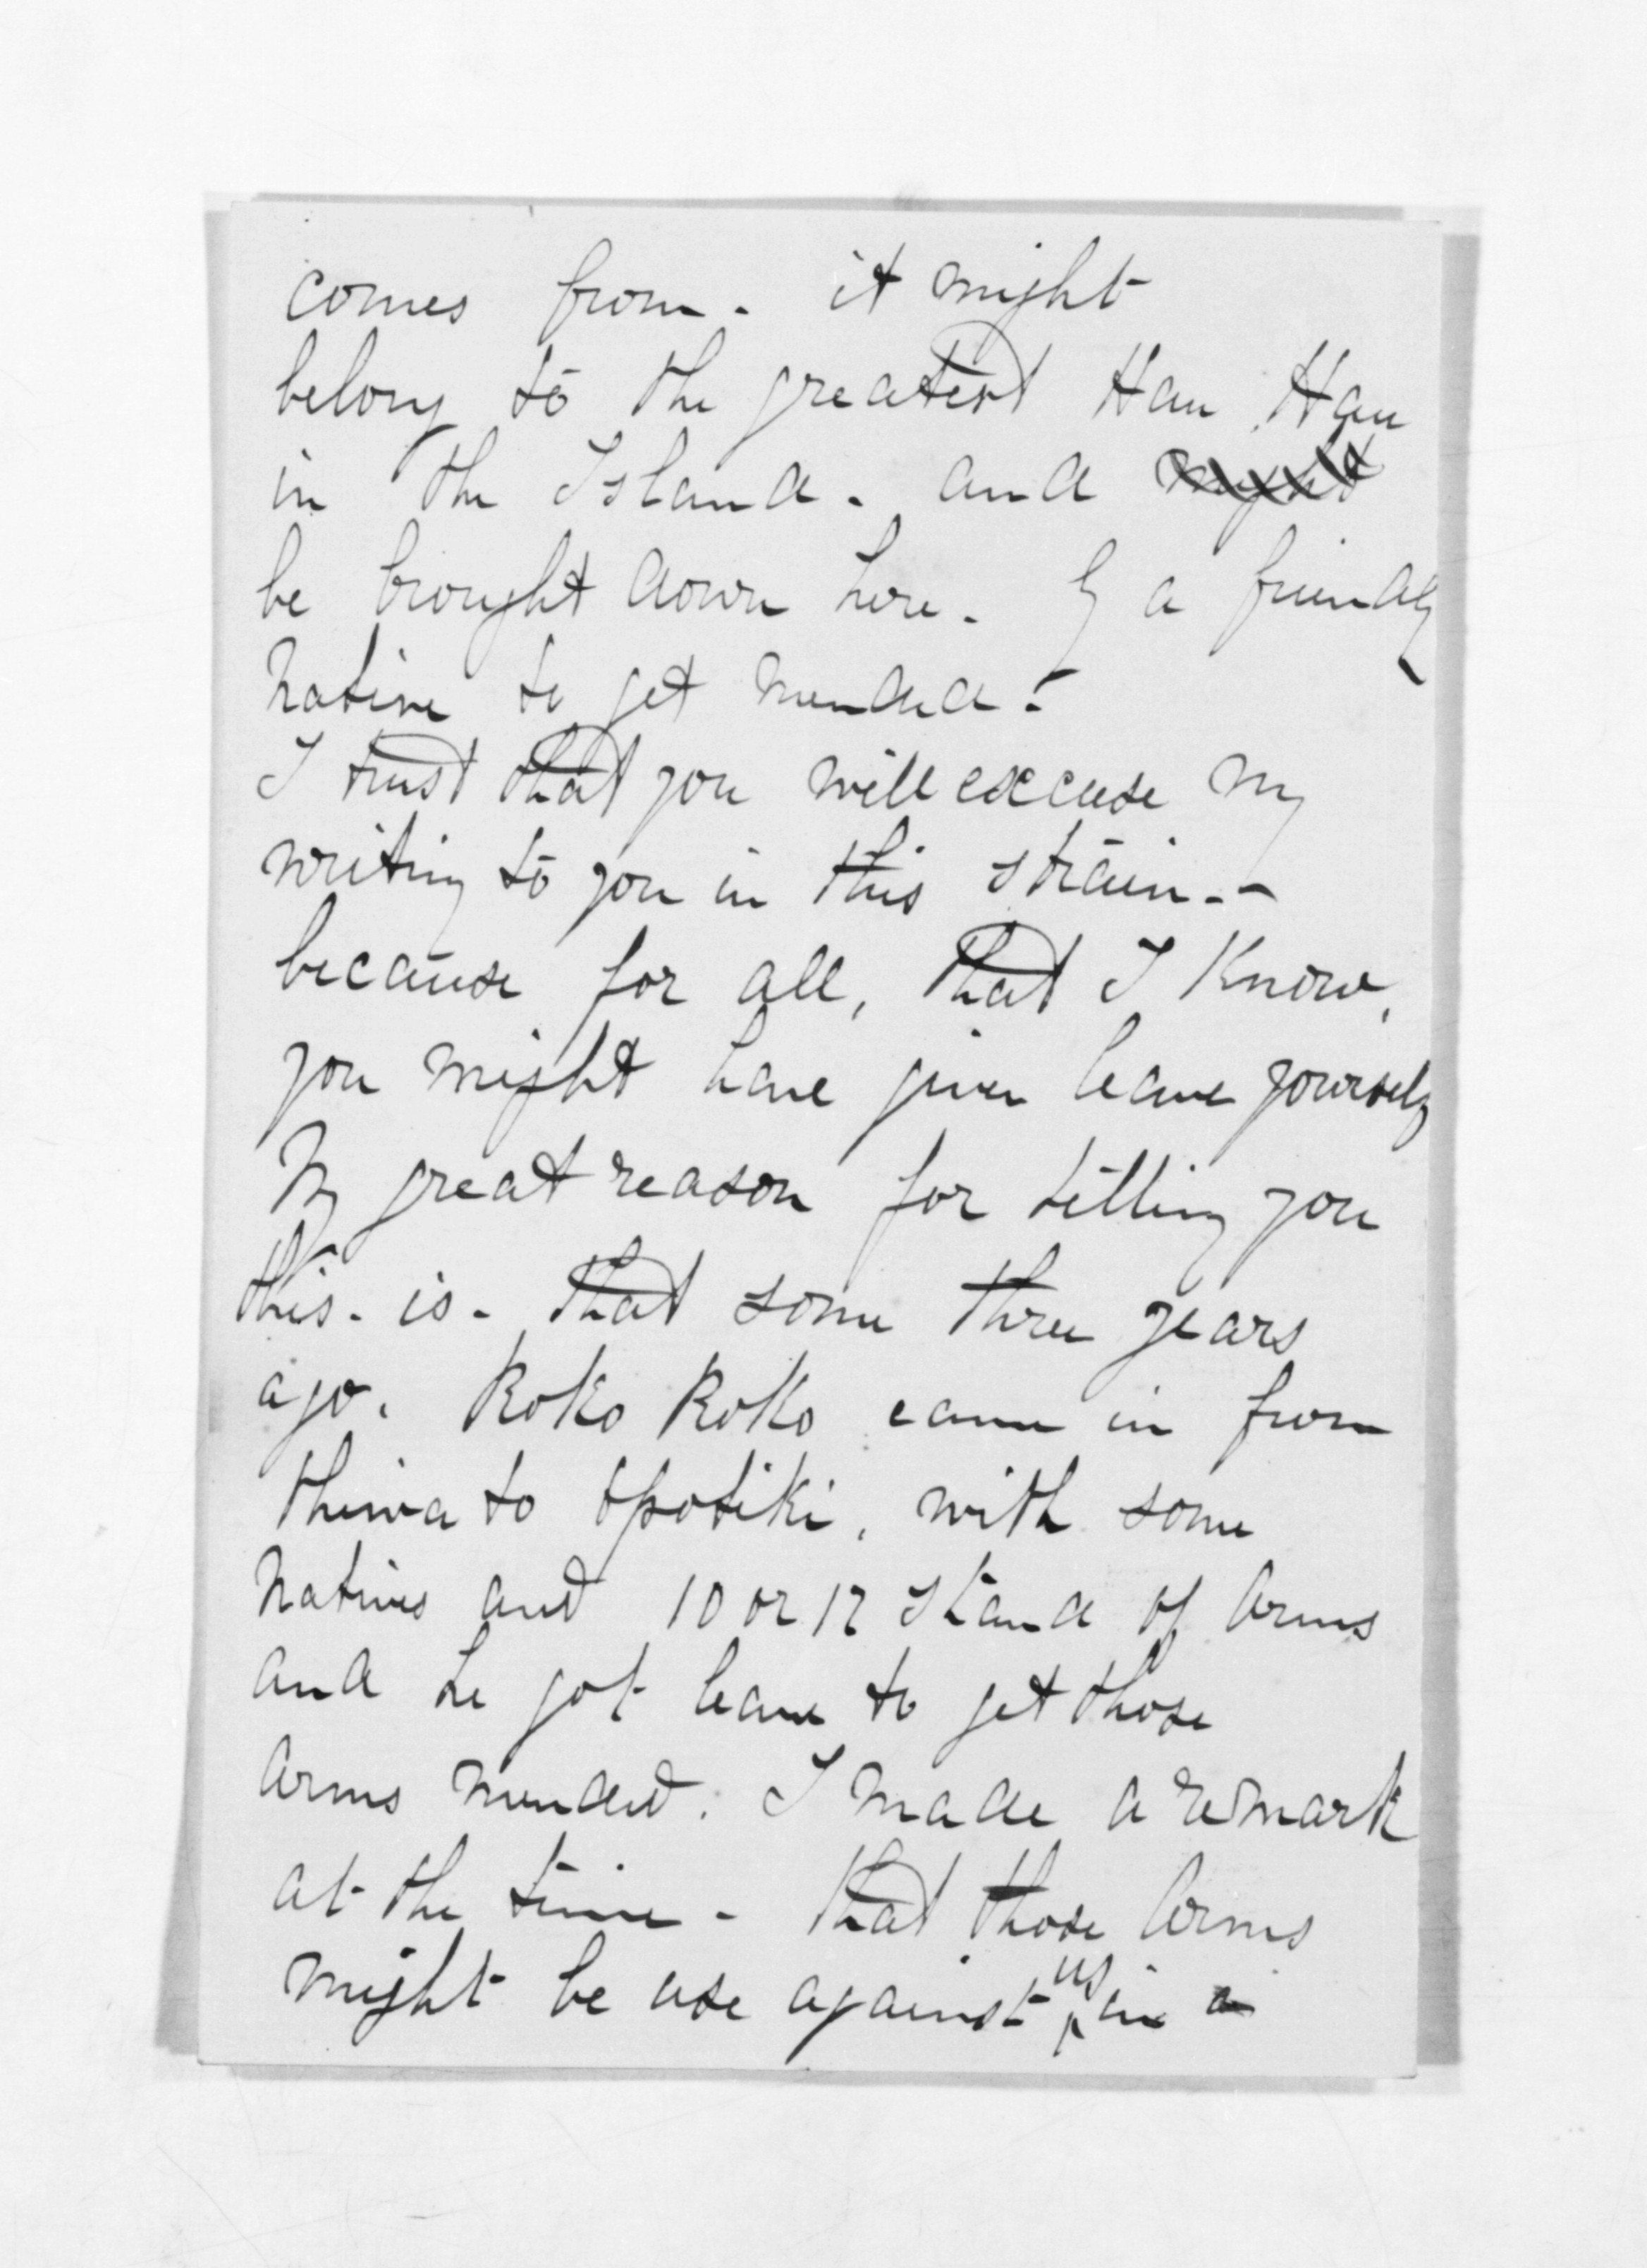 comes from - it might
belong to the greatest Hau Hau
in the Island - and might
be brought down here - by a friendly
native to get mended -
I trust that you will excuse my
writing to you in this strain - -
because for all, that I know,
you might have given leave yourself
My great reason for telling you
this - is - that some three years
ago. Roko Roko came in from
Ohiwa to Opotiki, with some
natives and 10 or 12 stand of Arms
and he got leave to get those
Arms mended. I made a remark
at the time - that those Arms
might be use against us in a